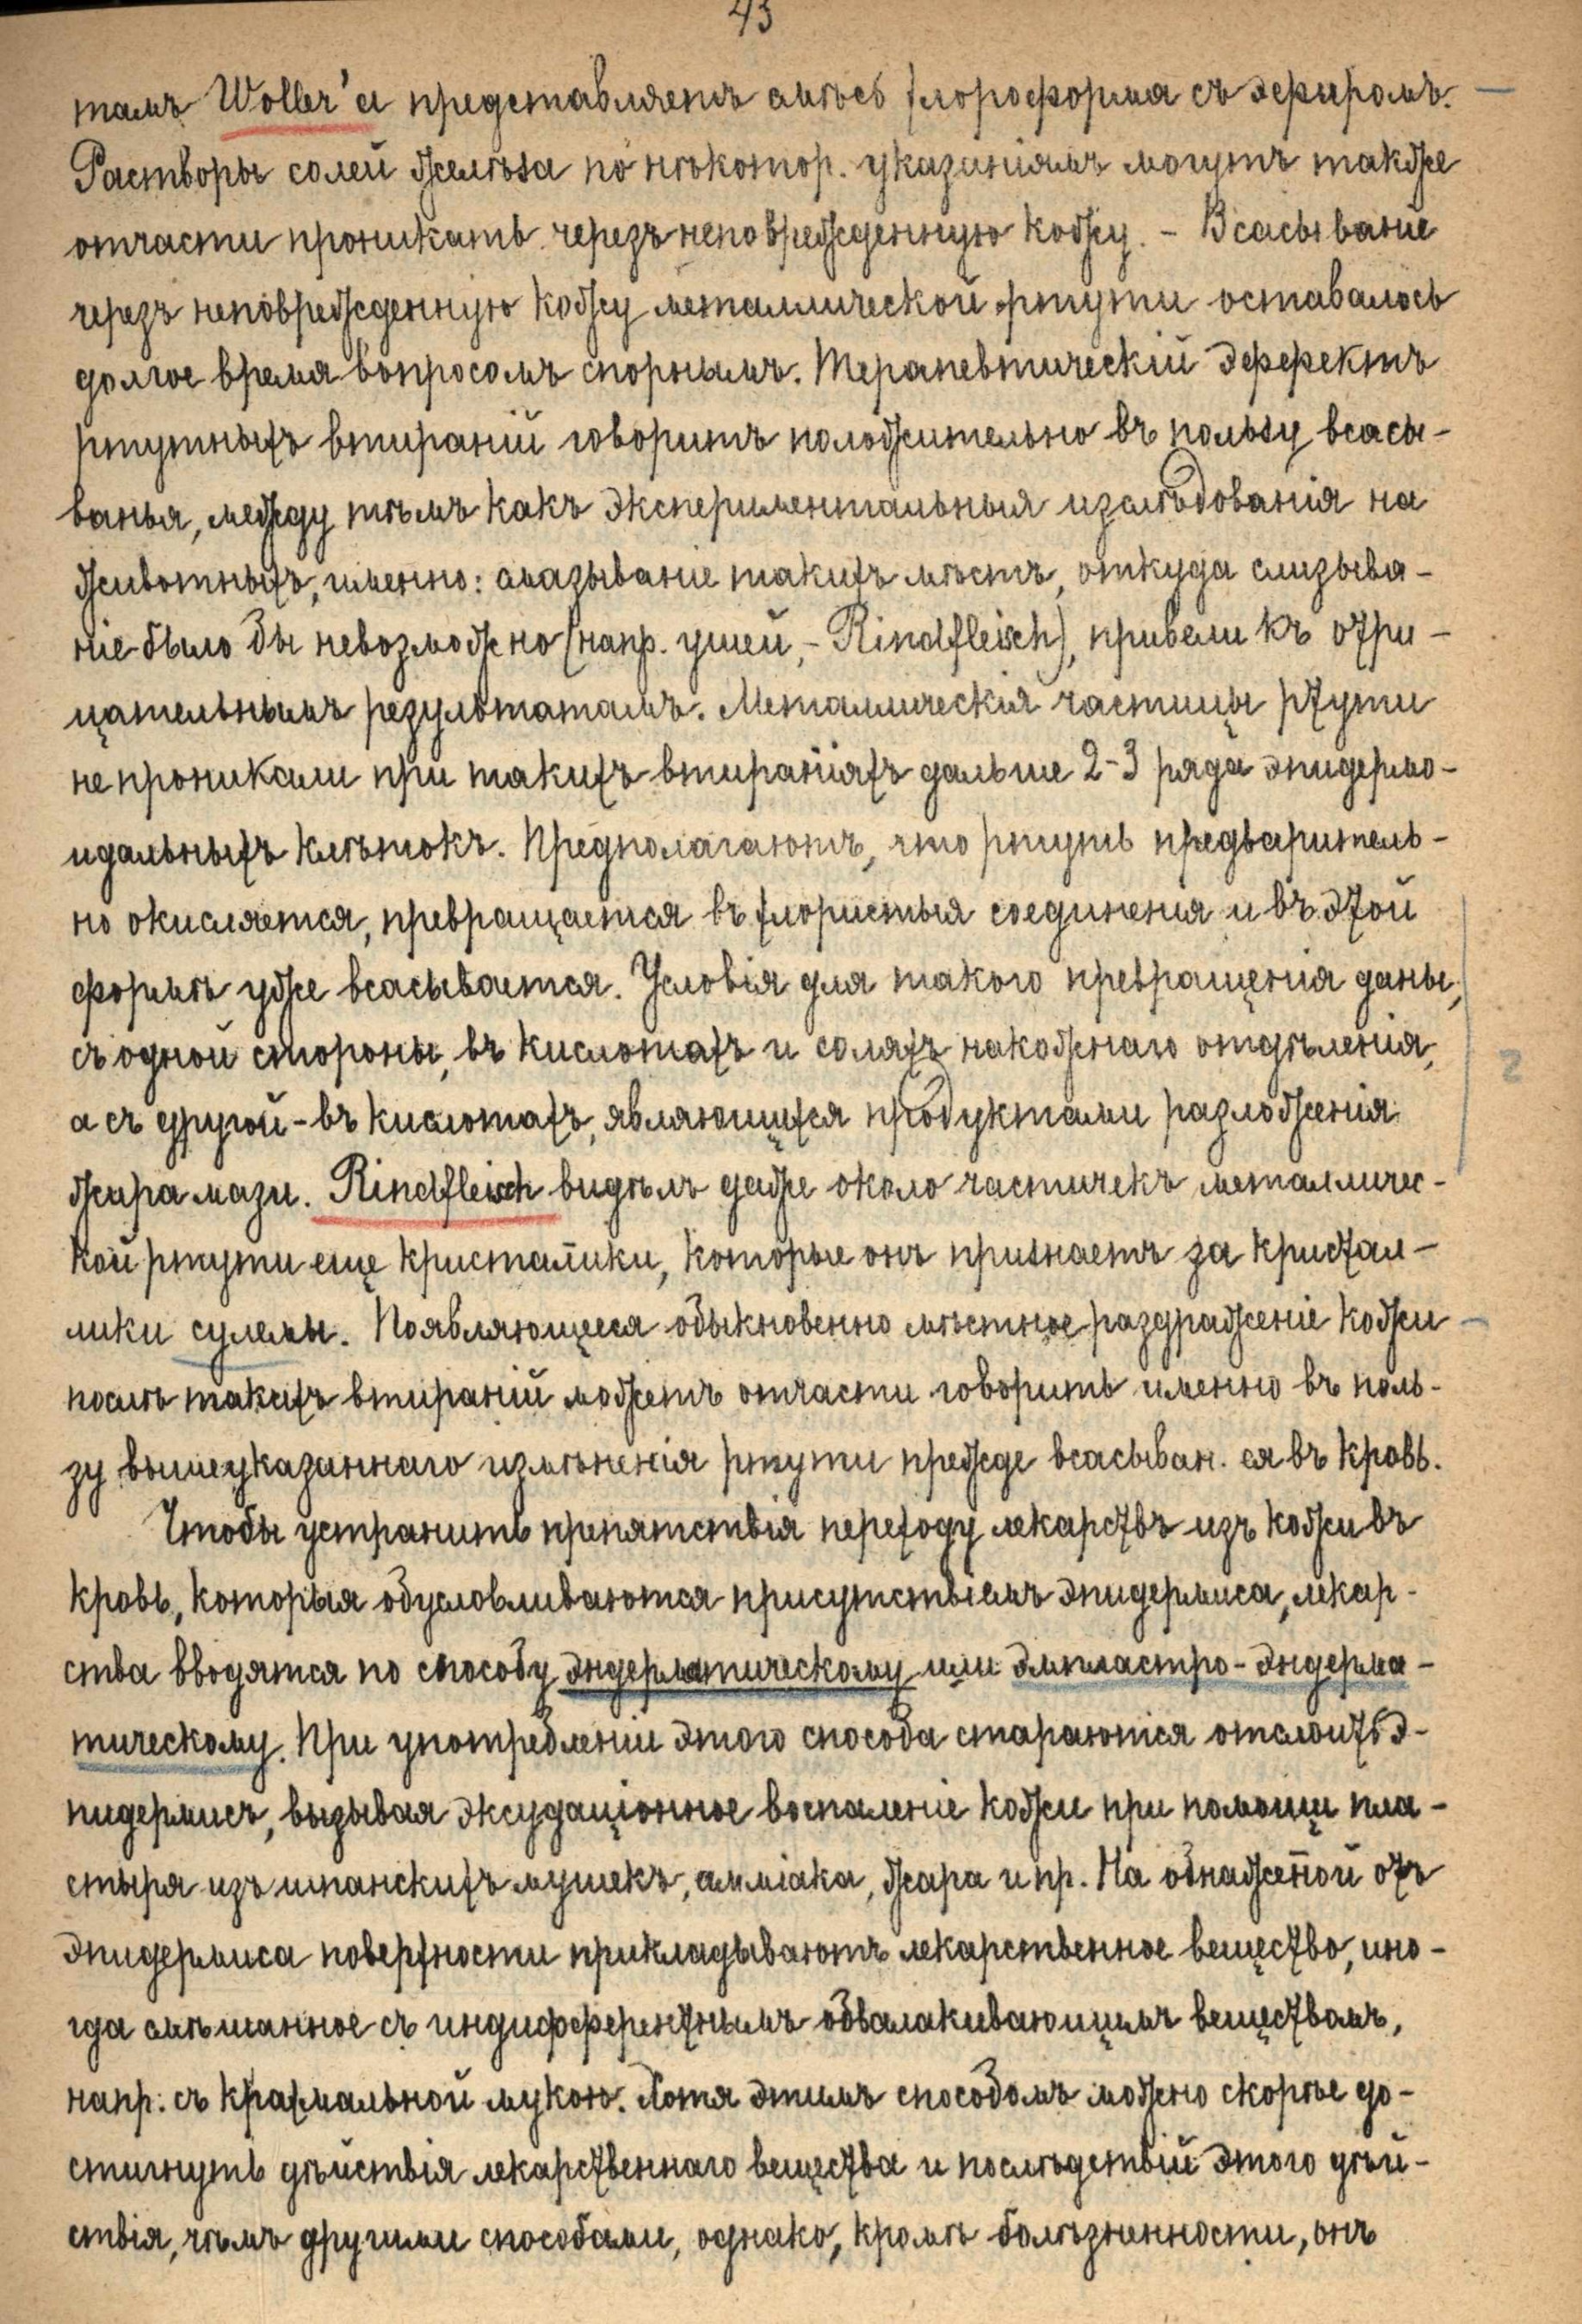 43
тамъ Woller'а представляетъ смѣсь хлороформа съ эфиромъ.
Растворы солей желѣза по нѣкотор. указаніямъ могутъ также
отчасти проникать черезъ неповрежденную кожу. - Всасыванie
черезъ неповрежденную кожу металлической ртути оставалось
долгое время вопросомъ спорнымъ. Терапевтическій эффектъ
ртутныхъ втираній говоритъ положительно въ пользу всасы-
ванья, между тѣмъ какъ экспериментальныя изслѣдованія на
животныхъ, именно: смазыванiе такихъ мѣстъ, откуда слизыва-
нiе было бы невозможно (напр. ушей, - Rindfleisch), привели къ отри-
цательнымъ результатамъ. Металлическія частицы ртути
не проникали при такихъ втираніяхъ дальше 2-3 ряда эпидермо-
идальныхъ клѣтокъ. Предполагаютъ, что ртуть предваритель-
но окисляется, превращается въ хлористыя соединенія и въ этой
формѣ уже всасывается. Условія для такого превращенія даны,
съ одной стороны, въ кислотахъ и соляхъ накожнаго отдѣленія,
а съ другой - въ кислотахъ, являющихся продуктами разложенія
жира мази. Rindfleisch видѣлъ даже около частичекъ металличес-
кой ртути еще кристалики, которые онъ признаетъ за кристал-
лики сулемы. Появляющееся обыкновенно мѣстное раздраженіе кожи
послѣ такихъ втираній можетъ отчасти говорить именно въ поль-
зу вышеуказаннаго измѣненія ртути прежде всасыван. ея въ кровь.
Чтобы устранить препятствія переходу лекарствъ изъ кожи въ
кровь, которыя обусловливаются присутствіемъ эпидермиса, лекар-
ства вводятся по способу эндерматическому или эмпластро-эндерма-
тическому. При употребленіи этого способа стараются отслоить э-
пидермисъ, вызывая эксудаціонное воспаленіе кожи при помощи пла-
стыря изъ шпанскихъ мушекъ, амміака, жара и пр. На обнажен̄ой отъ
эпидермиса поверхности прикладываютъ лекарственное вещество, ино-
гда смѣшанное съ индифферентнымъ обвалакивающимъ веществомъ,
напр. съ крахмальной мукою. Хотя этимъ способомъ можно скорѣе до-
стигнуть дѣйствія лекарственнаго вещества и послѣдствій этого дѣй-
ствія, чѣмъ другими способами, однако, кромѣ болѣзненности, онъ